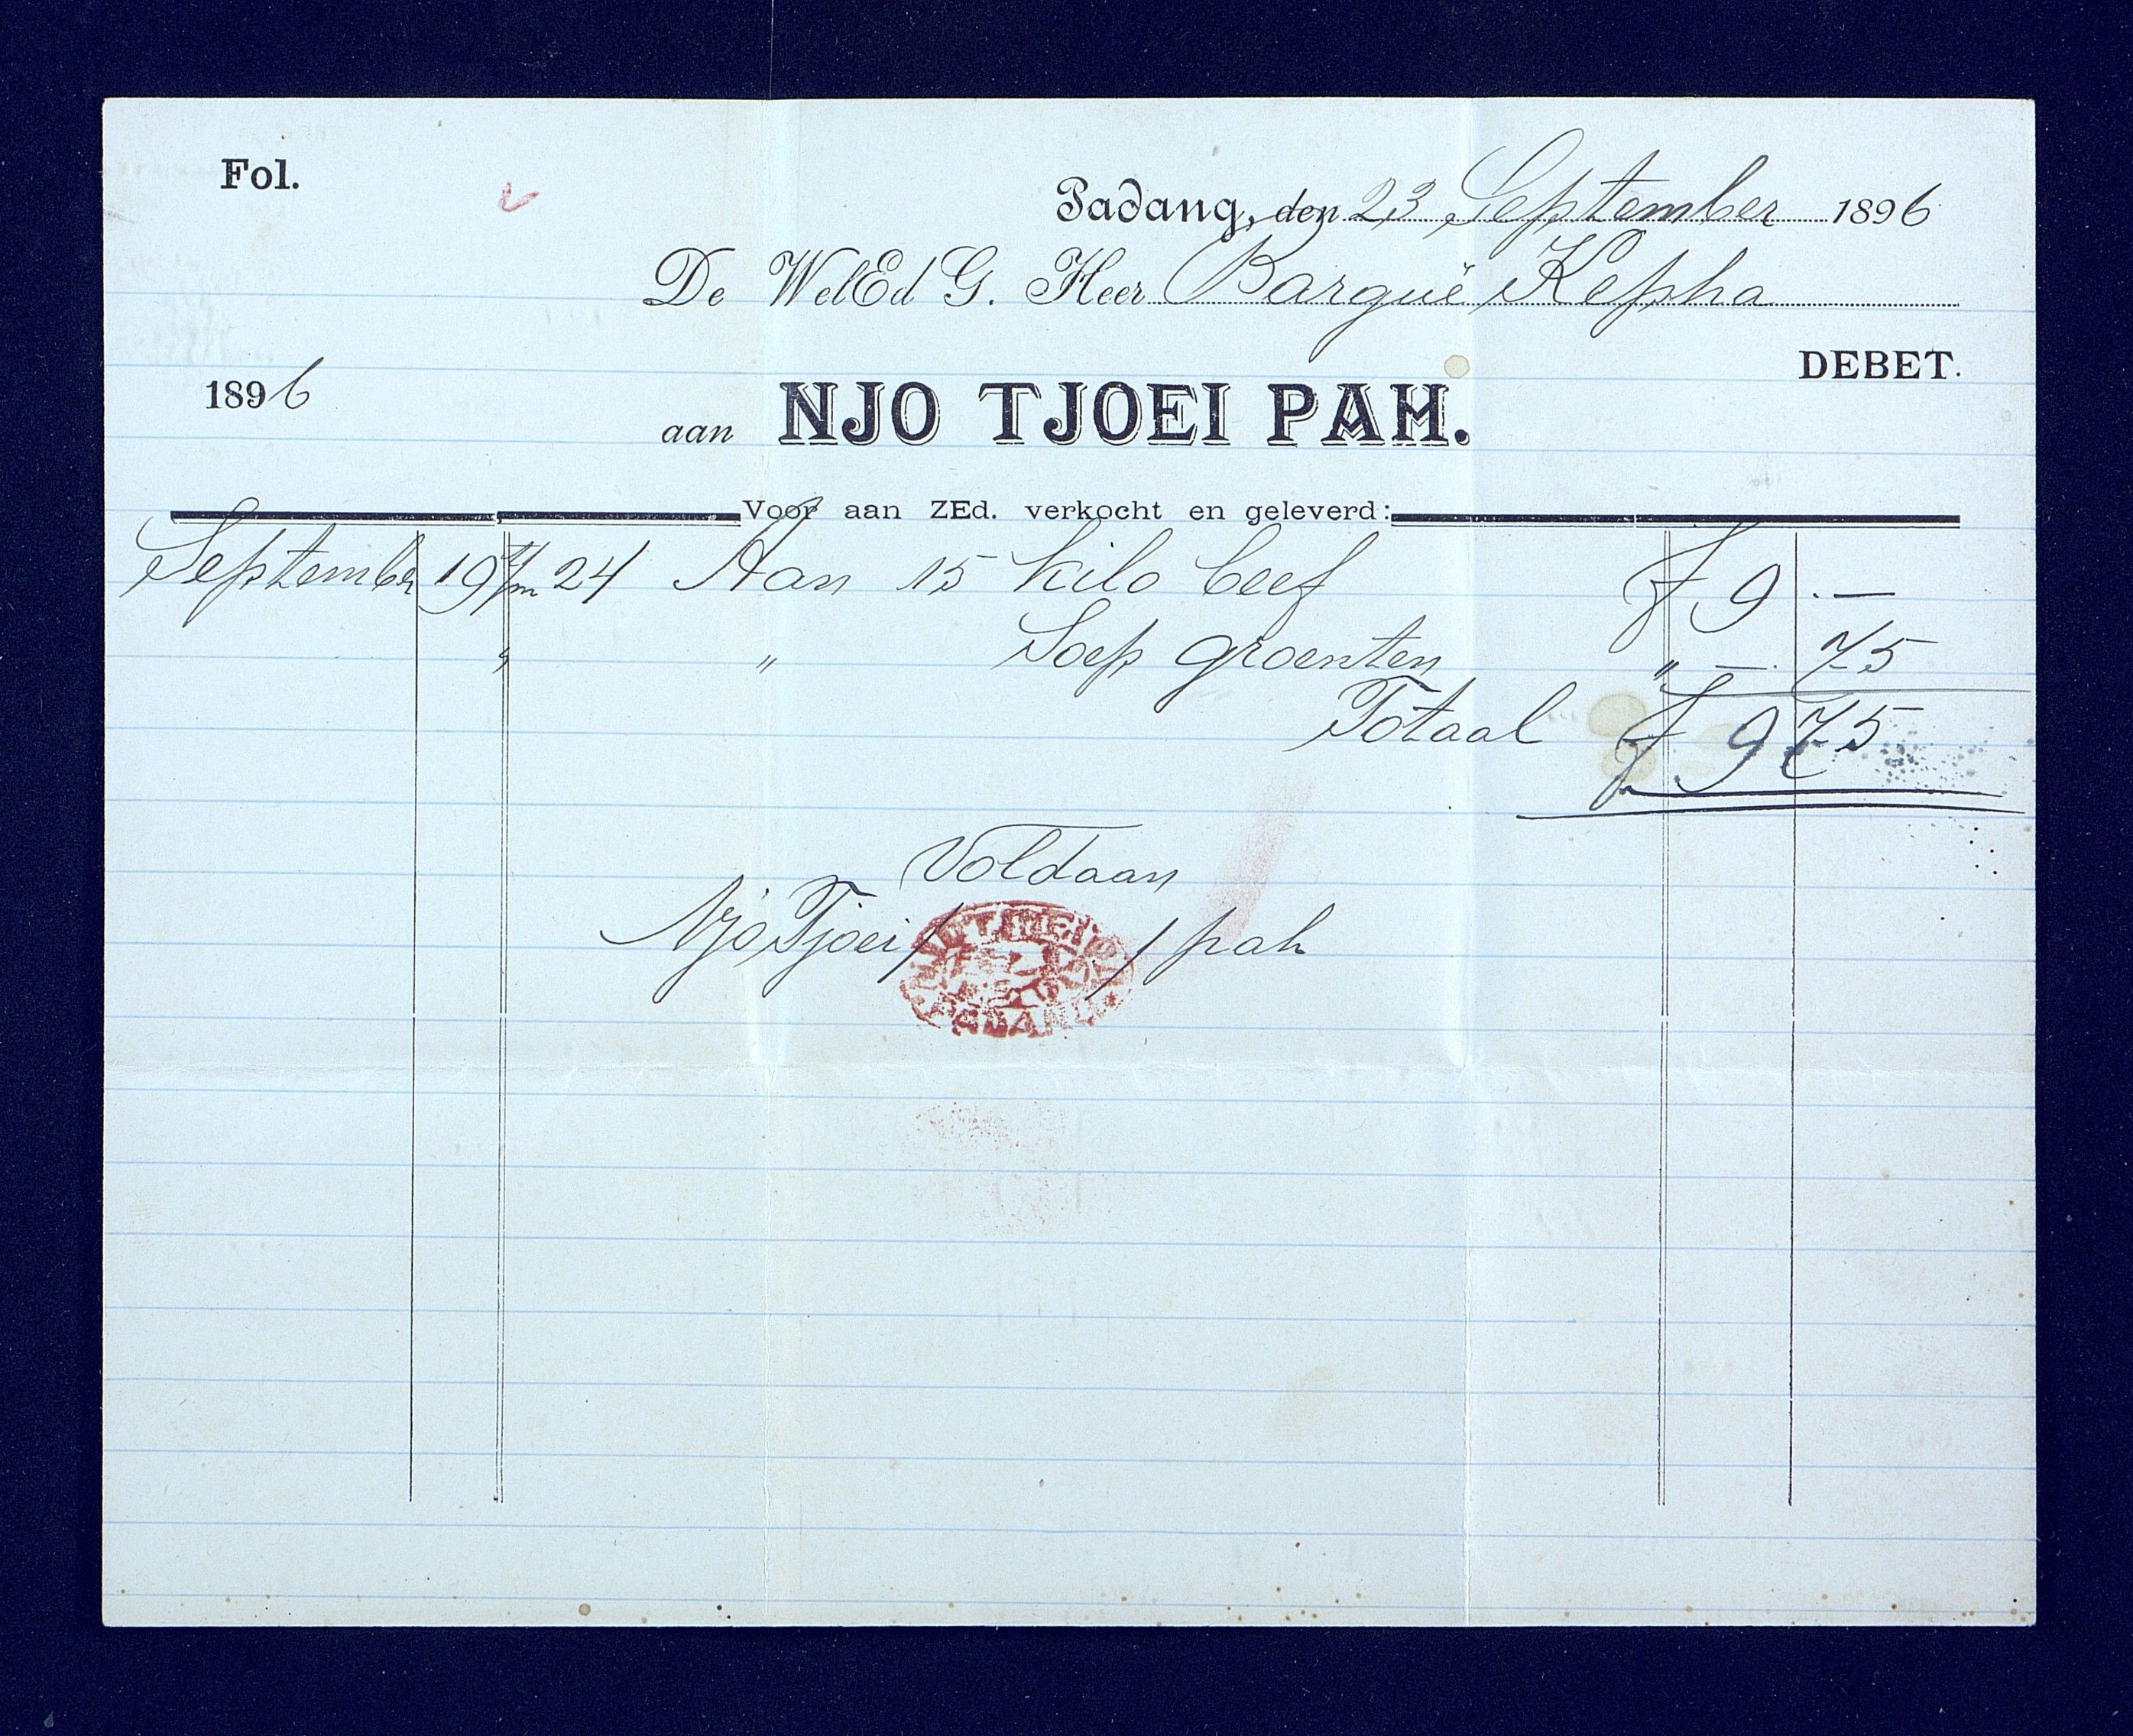 Fol.
Padang, den 23 September 1896
De WelEd G. Heer Barque Kepha
DEBET.
1896
aan NJO TJOEI PAH.
Voor aan ZEd. verkocht en geleverd:
September 19 t/m 24 Aan 15 Kilo beef f 9 . —
" " Soep groenten " —. 75
Totaal f 9 75
Voldaan
Njo Tjoei / / pah